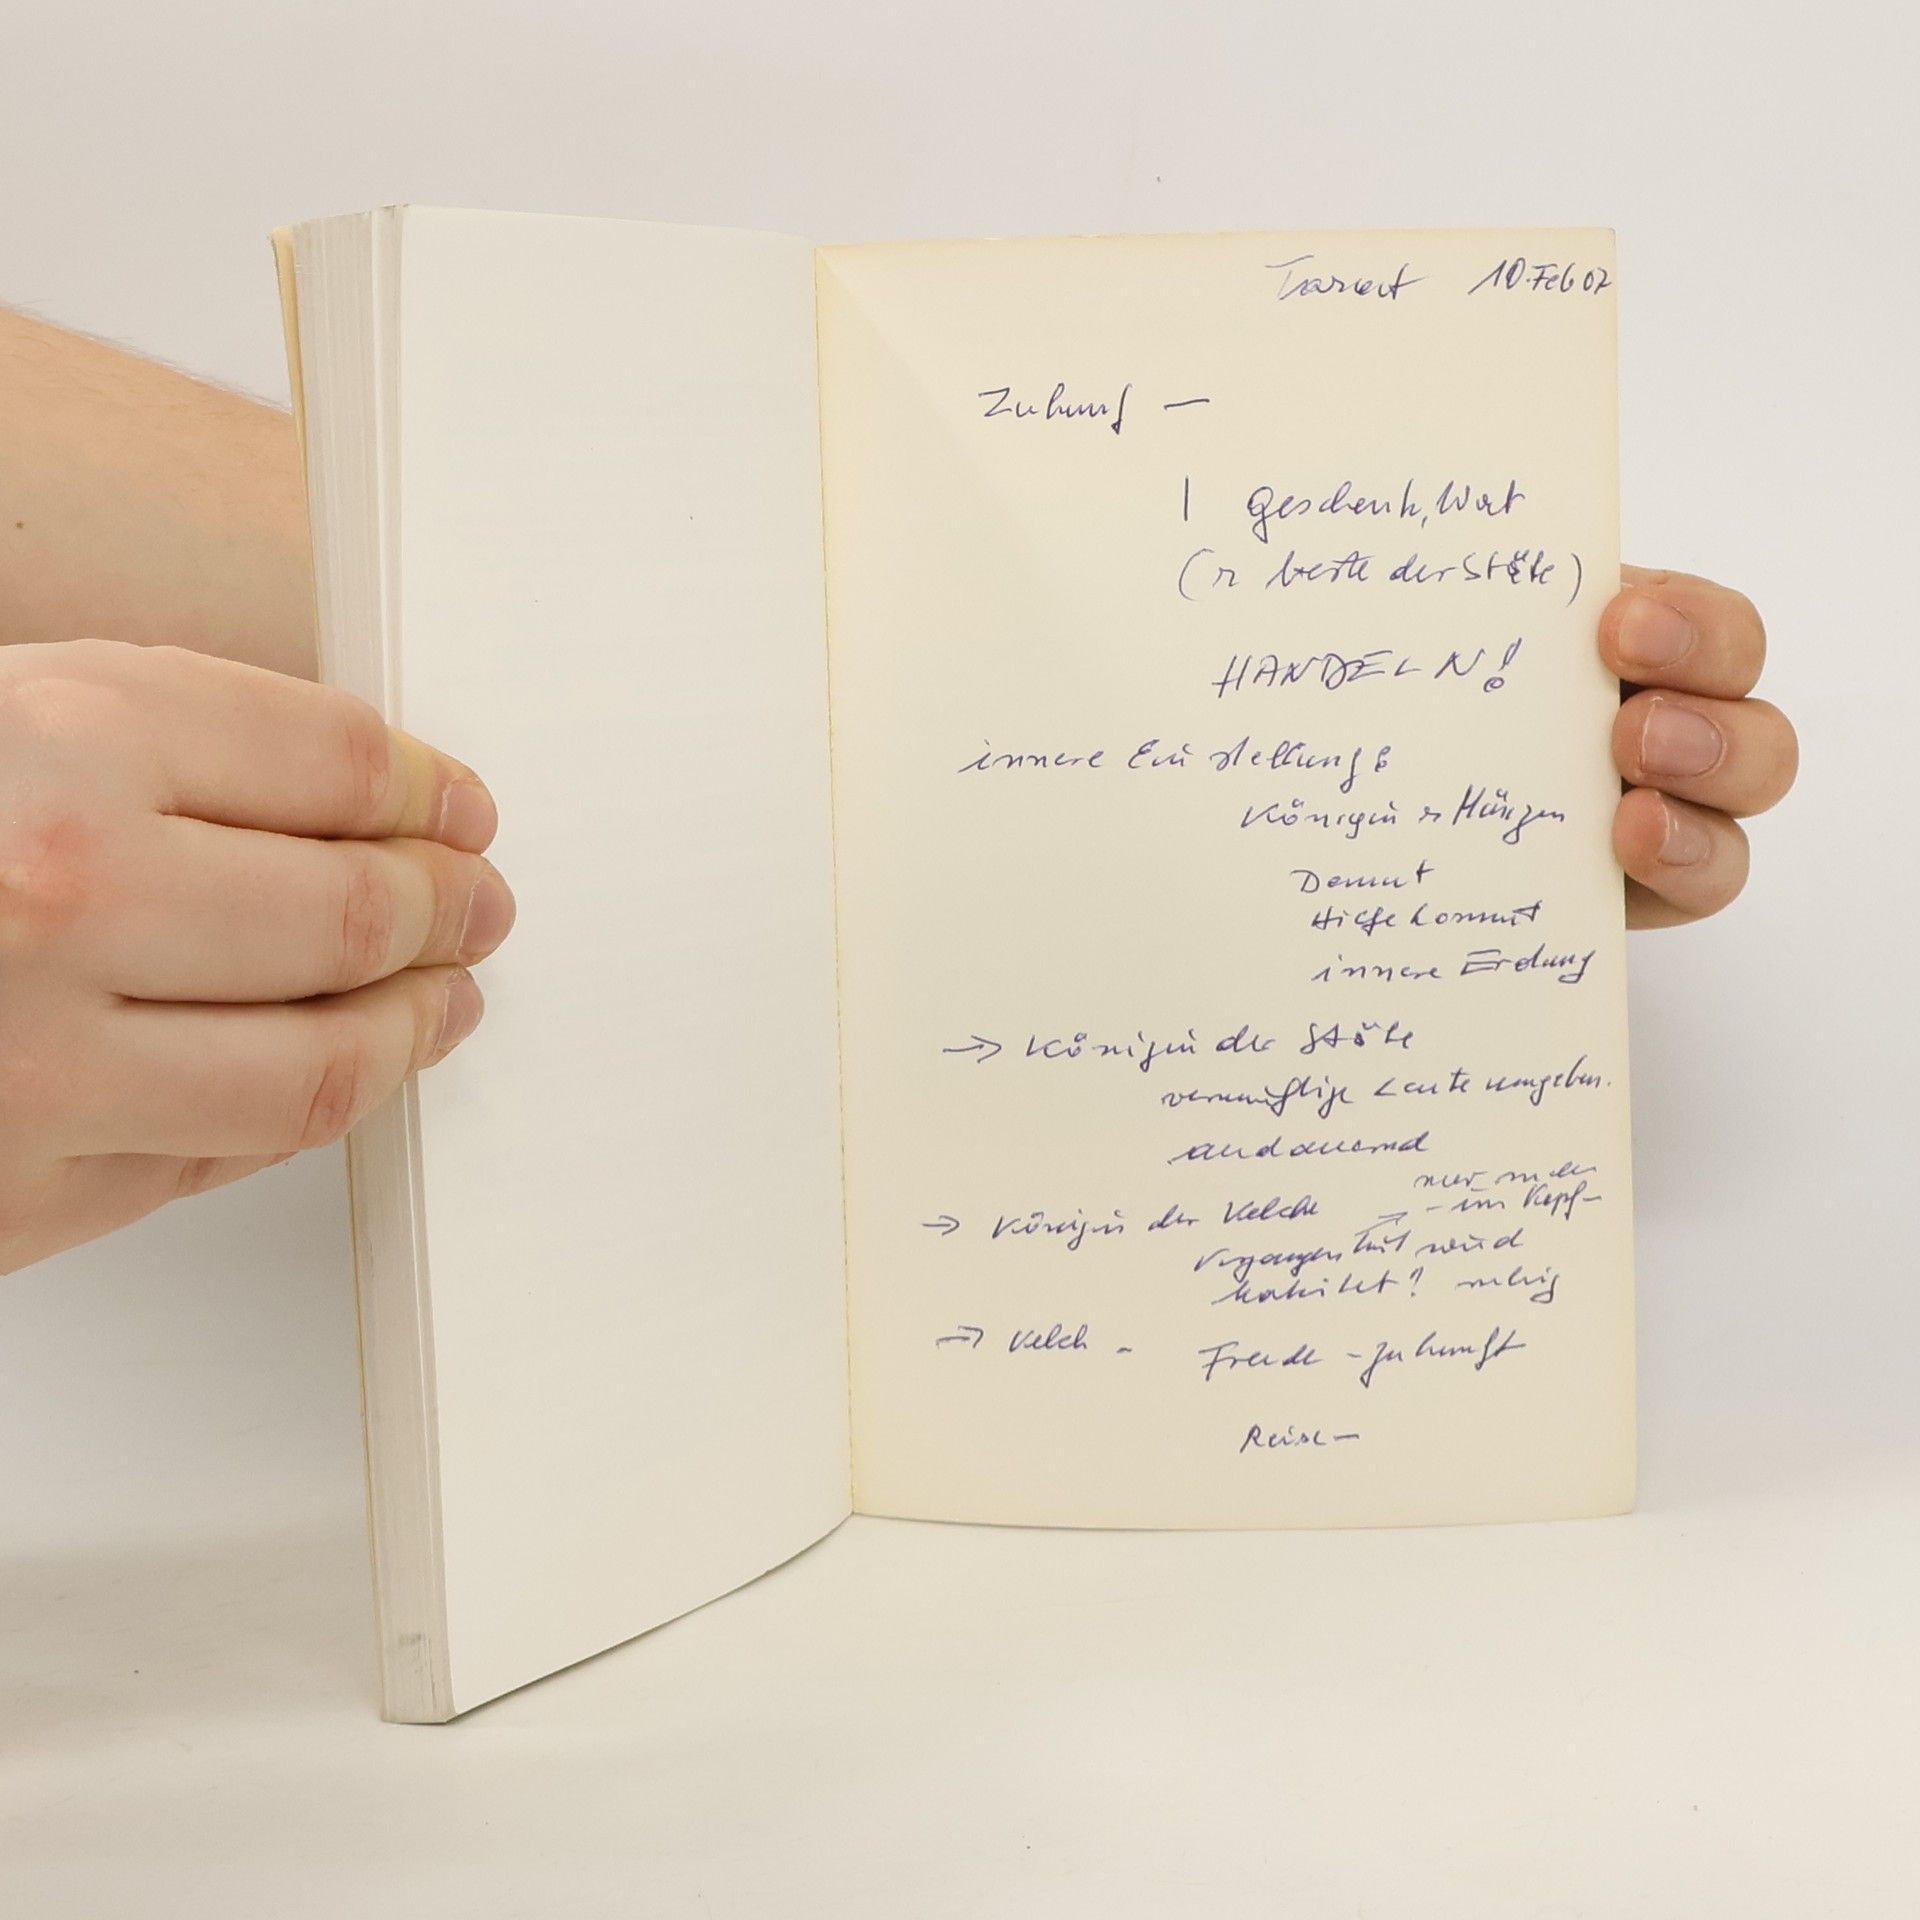 Tarot 10. Feb 07
Zukunf —
| Geschenk, Wort
( beste der Stäbe)
HANDELN!
innere Einstellung:
Königin Münzen
Demut
Hilfe kommt
innere Erdung
→ Königin der Stäbe
vernünftige Leute umgeben.
andauernd
nur in der
→ Königin der Kelche → - im Kopf -
Vergangenheit wird
ruhig
→ Kelch - Freude - Zukunft
Reise —